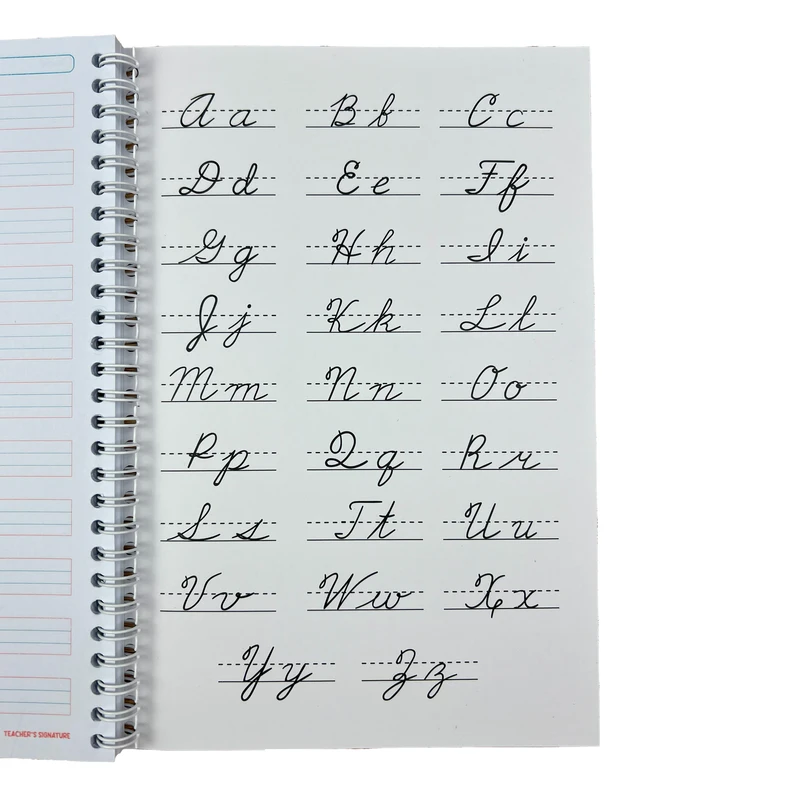 A a B b C c
D d E e F f
G g H h I i
J j K k L l
M m N n O o
P p Q q R r
S s T t U u
V v W w X x
Y y Z z
TEACHER'S SIGNATURE